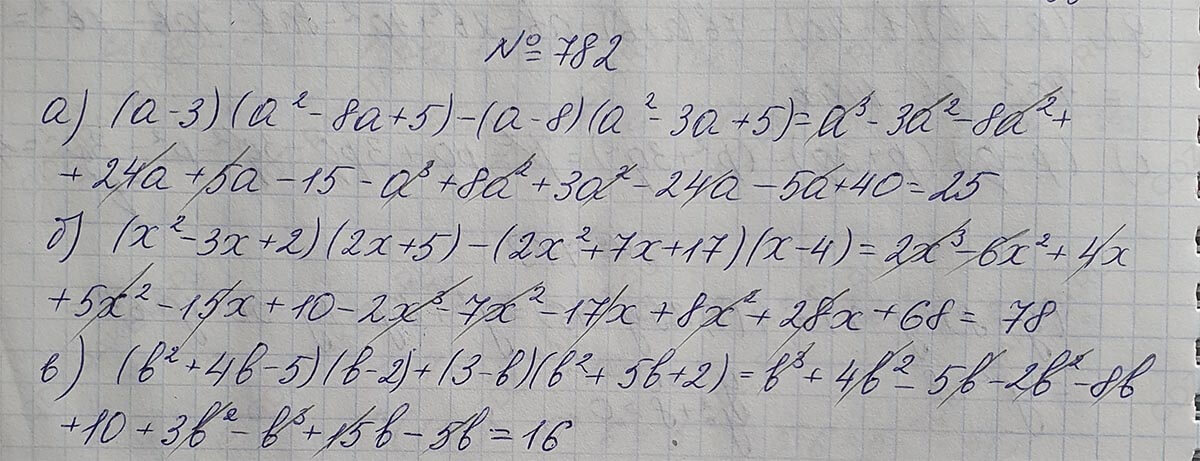 № 782
а) (a-3)(a²-8a+5)-(a-8)(a²-3a+5)=a³-3a²-8a²+
+24a+5a-15-a³+8a²+3a²-24a-5a+40=25
б) (x²-3x+2)(2x+5)-(2x²+7x+17)(x-4)=2x³-6x²+4x
+5x²-15x+10-2x³-7x²-17x+8x²+28x+68=78
в) (b²+4b-5)(b-2)+(3-b)(b²+5b+2)=b³+4b²-5b-2b²-8b
+10+3b²-b³+15b-5b=16